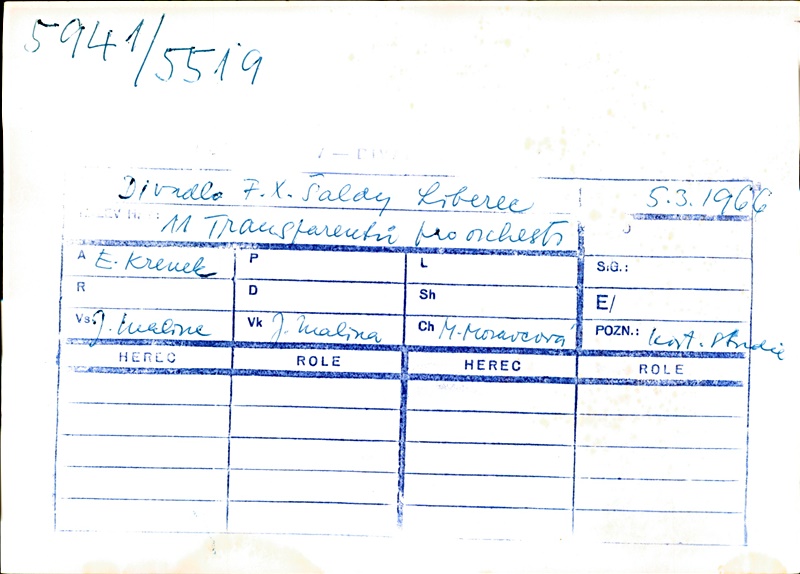 5941/5519
Divadlo F.X. Šaldy Liberec 5.3.1966
11 Transparentů pro orchestr
A E. Krenek P L SIG.:
R D Sh E/
Vs J. Malina Vk J. Malina Ch M. Moravcová POZN.: kost. studie
HEREC ROLE HEREC ROLE